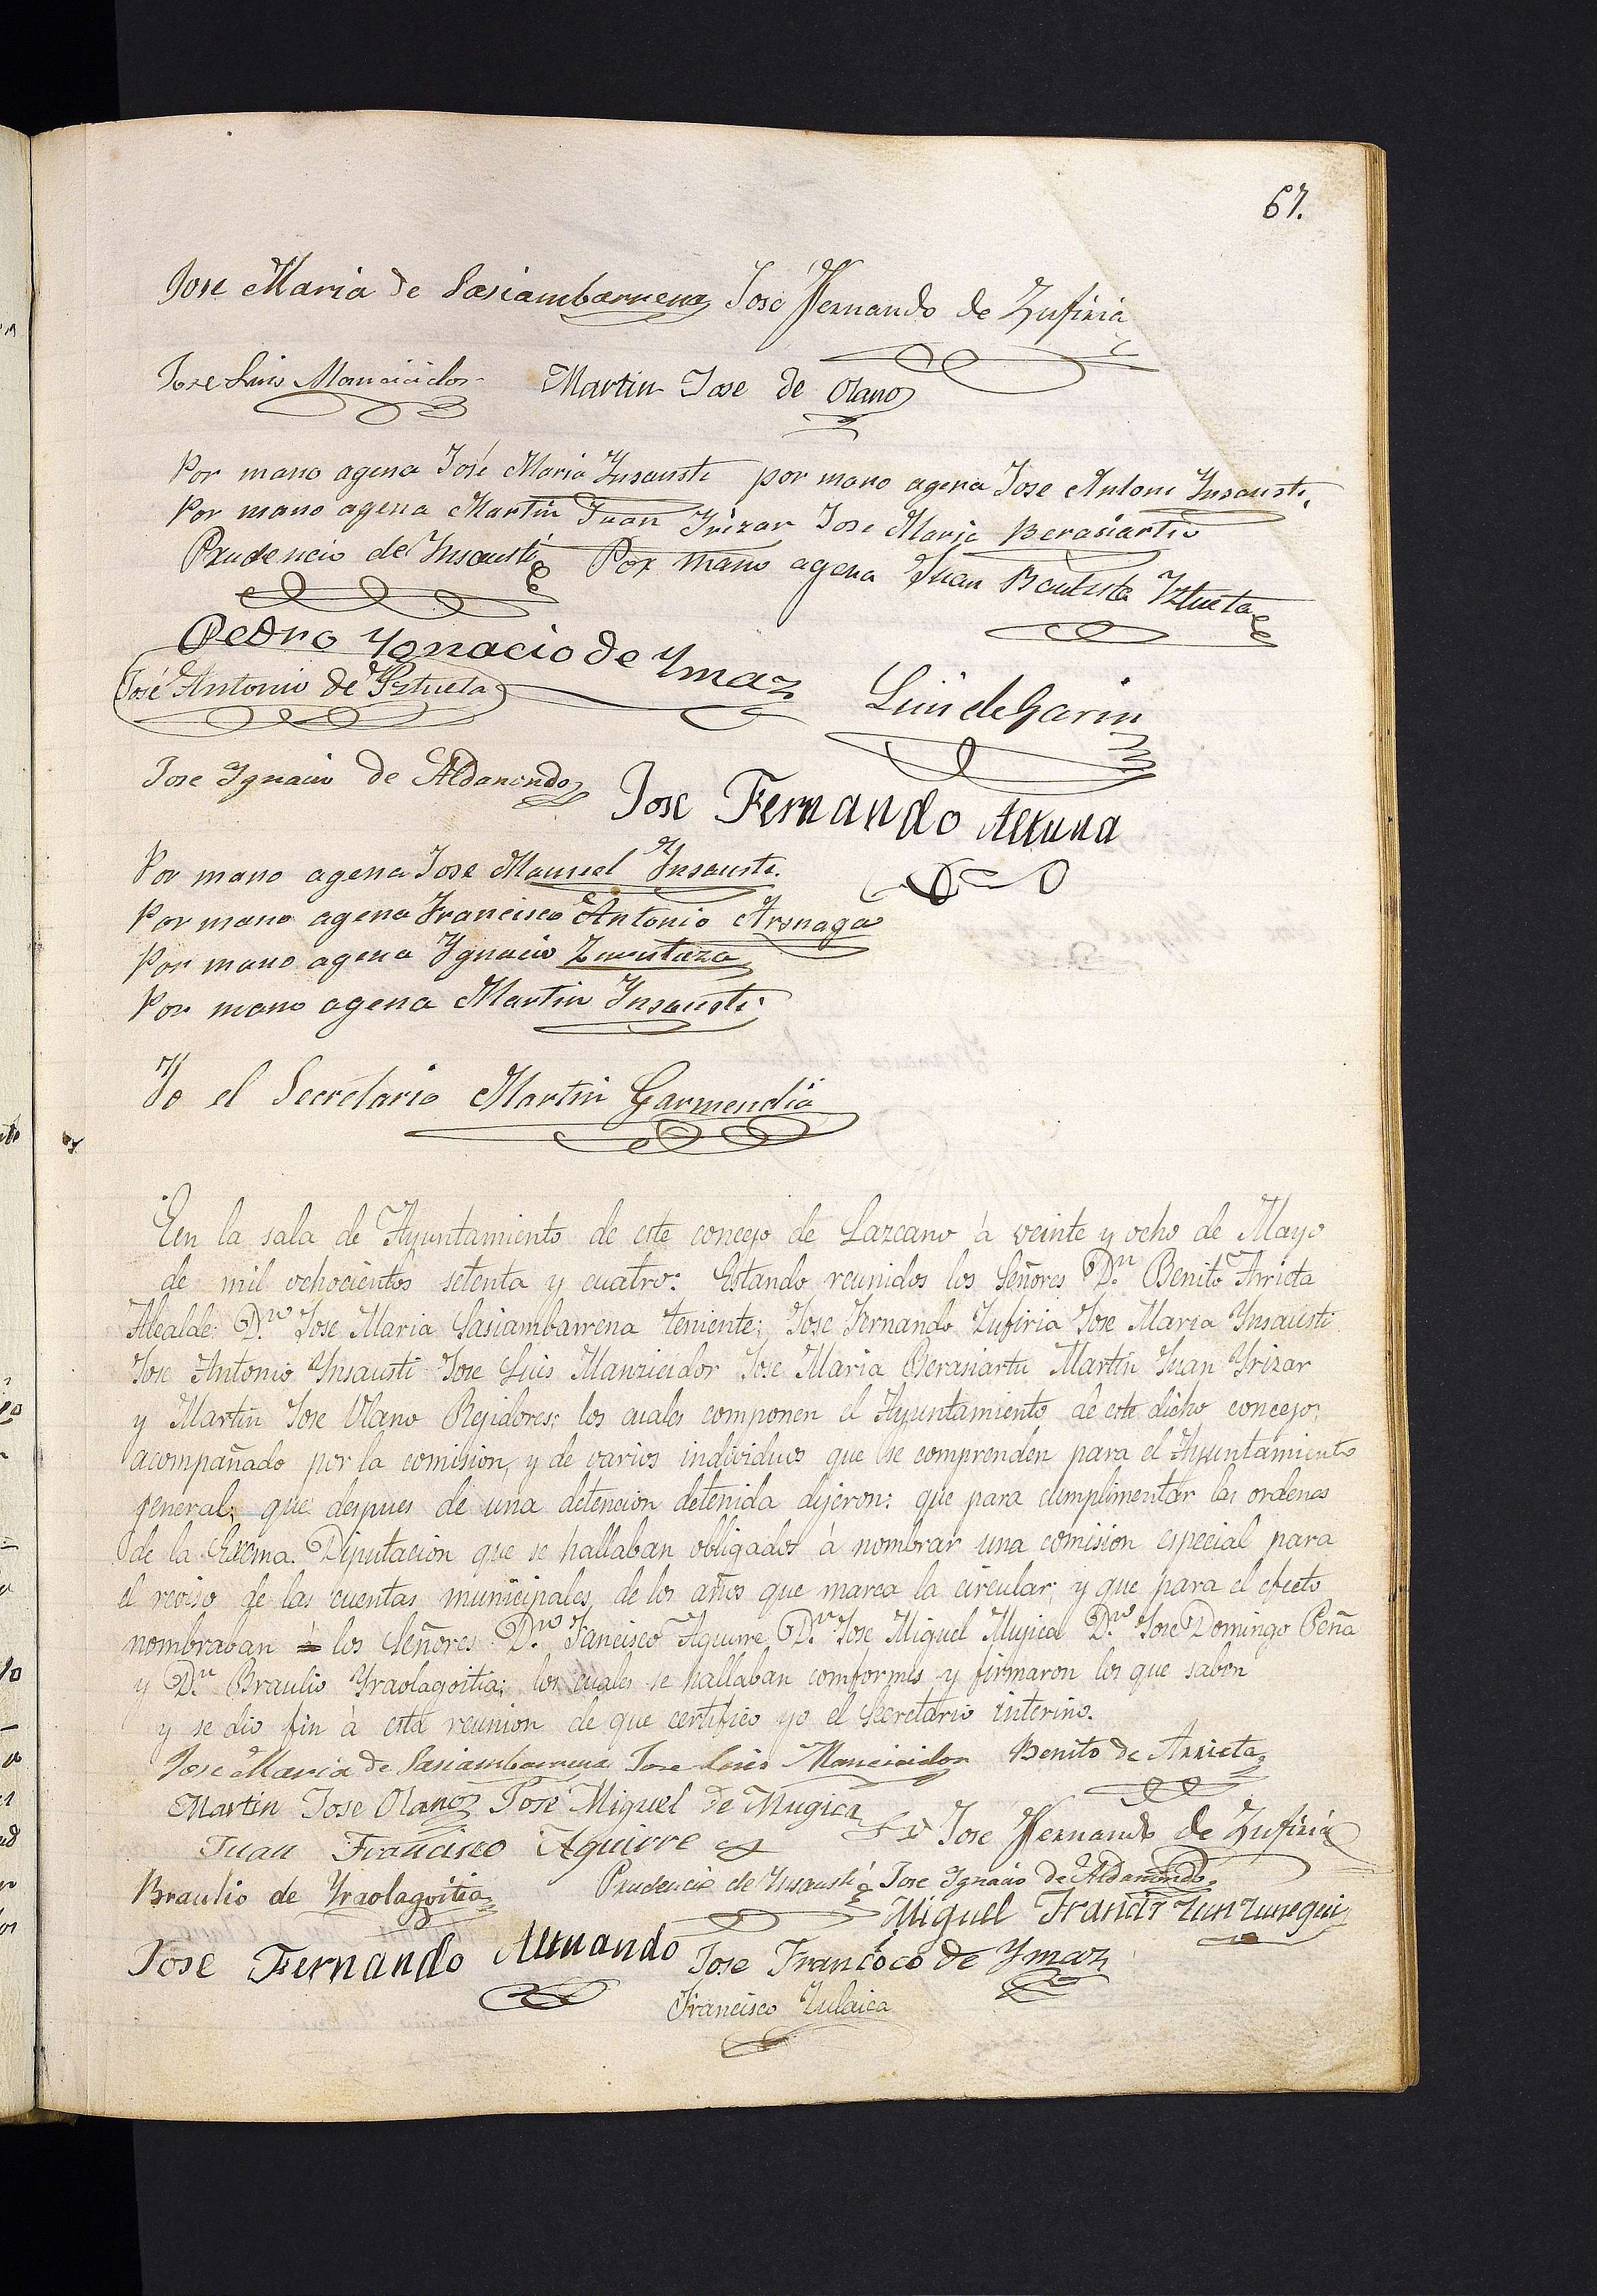 67.
Jose Maria de Sasiambarrena José Fernando de Zufiria
Jose Luis Mancicidor Martin Jose de Olano
Por mano agena José Maria Ynsausti por mano agena Jose Antonio Ynsausti
Por mano agena Martin Juan Yrizar Jose Maria Berasiartu
Prudencio de Ynsausti Por mano agena Juan Bautista Yztueta
Pedro Ygnacio de Ymaz
José Antonio de Yztueta Luis de Garin
Jose Ygnacio de Aldanondo Jose Fernando Altuna
Por mano agena Jose Manuel Ynsausti.
Por mano agena Francisco Antonio Arsnaga
Por mano agena Ygnacio
Por mano agena Martin Ynsausti
Yo el Secretario Martin Garmendia
En la sala de Ayuntamiento de este concejo de Lazcano à veinte y ocho de Mayo
de mil ochocientos setenta y cuatro: Estando reunidos los Señores Dn. Benito Arrieta
Alcalde: Dn. Jose Maria Sasiambarrena teniente; Jose Fernando Zufiria Jose Maria Ynsausti
Jose Antonio Ynsausti Jose Luis Manzicidor Jose Maria Berasiartu Martin Juan Yrizar
y Martin Jose Olano Rejidores; los cuales componen el Ayuntamiento de este dicho concejo;
acompañado por la comision, y de varios individuos que se comprenden para el Ayuntamiento
jeneral; que despues de una detencion detenida dijeron: que para cumplimentar las ordenes
de la Excma. Diputacion que se hallaban obligados à nombrar una comision especial para
el reviso de las cuentas municipales, de los años que marca la circular; y que para el efecto
nombraban à los Señores Dn. Fancisco Aguirre, Dn. Jose Miguel Mujica Dn. Jose Domingo Peña
y Dn. Braulio Yraolagoitia; los cuales se hallaban comformes y firmaron los que saben
y se dio fin à esta reunion de que certifico yo el Secretario interino.
Jose Maria de Sasiambarrena Jose Luis Mancicidor Benito de Arrieta
Martin Jose Olano José Miguel de Mugica
Juan Francisco Aguirre Jose Fernando de Zufiria
Braulio de Yraolagoitia Prudencio de Ynsausti Jose Ygnacio de Aldanondo
Miguel Francis Zunzunegui
Jose Fernando Altunando Jose Francoco de Ymaz
Francisco Zulaica